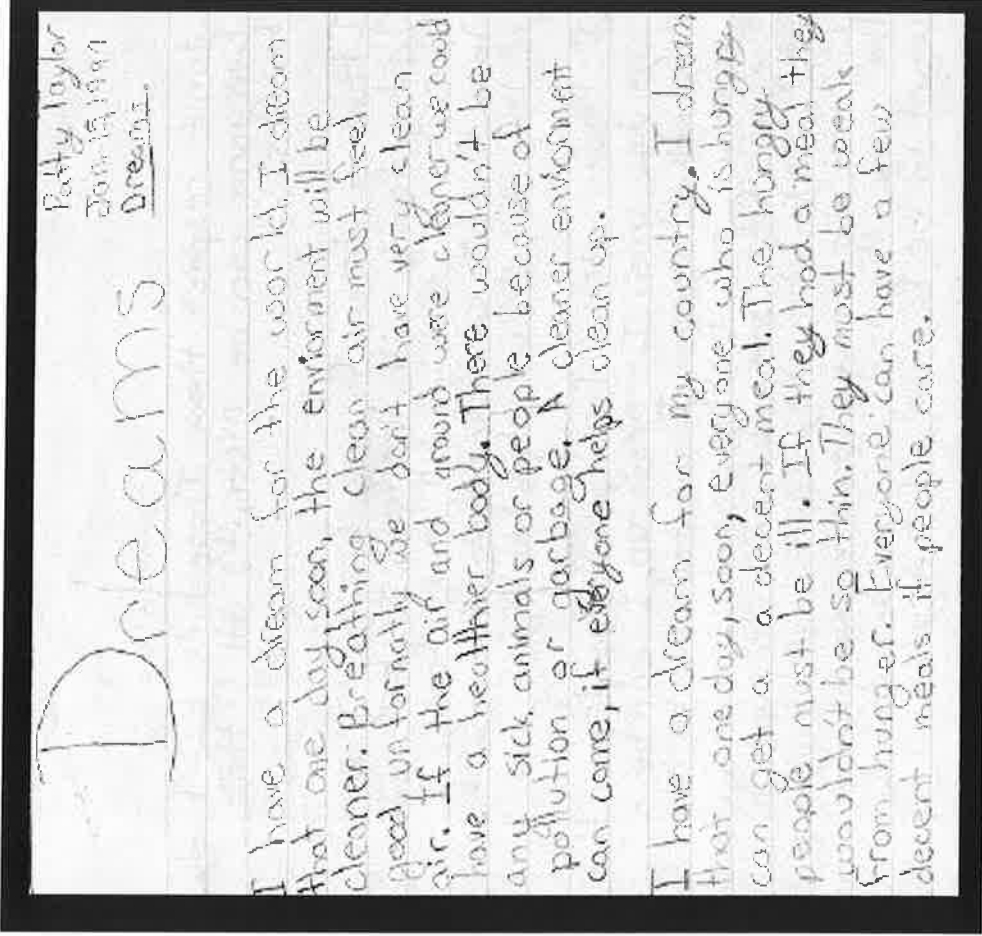 Patty Taylor
Jan 15, 1997
Dreams.
Dreams
I have a dream for the world. I dream
that one day soon, the enviorment will be
cleaner. Breathing clean air must feel
good unfornatly we don't have very clean
air. If the air and around were cleaner we could
have a healthier body. There wouldn't be
any sick animals or people because of
pollution or garbage. A cleaner enviorment
can come, if everyone helps clean up.
I have a dream for my country. I dream
that one day, soon, everyone who is hungry
can get a a decent meal. The hungry
people must be ill. If they had a meal they
wouldn't be so thin. They must be weak
from hunger. Everyone can have a few
decent meals if people care.